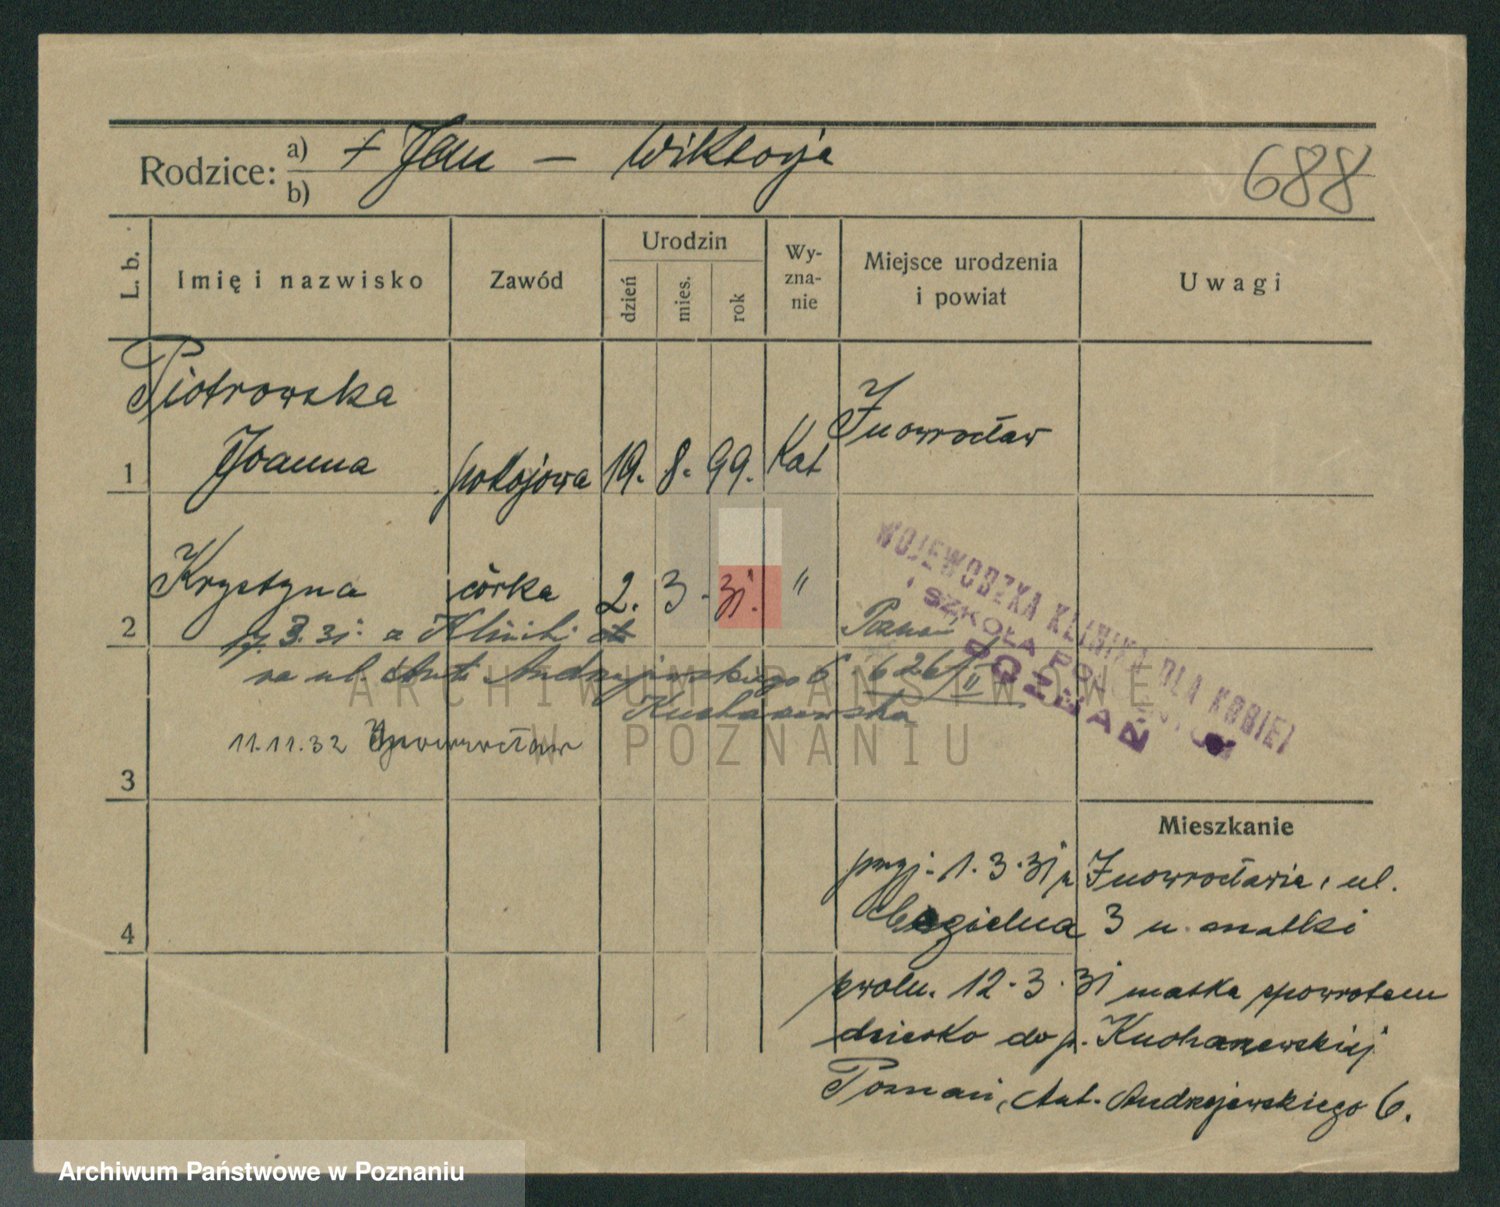 Rodzice: a) + Jan – Wiktorja
b)
688
L. b.
Imię i nazwisko
Zawód
Urodzin
dzień
mies.
rok
Wy-
zna-
nie
Miejsce urodzenia
i powiat
Uwagi
Piotrowska
1 Joanna pokojowa 19. 8. 99. Kat Inowrocław
2 Krystyna córka 2. 3. 31. " Poznań
17. 3. 31. z Kliniki
na ul. Ant. Andrzejewskiego 6. 626/II
Kuchanewska
11.11.32 Inowrocław
3
4
WOJEWÓDZKA KLINIKA DLA KOBIET
i SZKOŁA POŁOŻNYCH
POZNAŃ
Mieszkanie
przyj. 1. 3. 31 z Inowrocławia, ul.
Cegielna 3 u matki
zwoln. 12. 3. 31 matka spowrotem
dziecko do p. Kuchanewskiej
Poznań, Ant. Andrzejewskiego 6.
ARCHIWUM PAŃSTWOWE
W POZNANIU
Archiwum Państwowe w Poznaniu